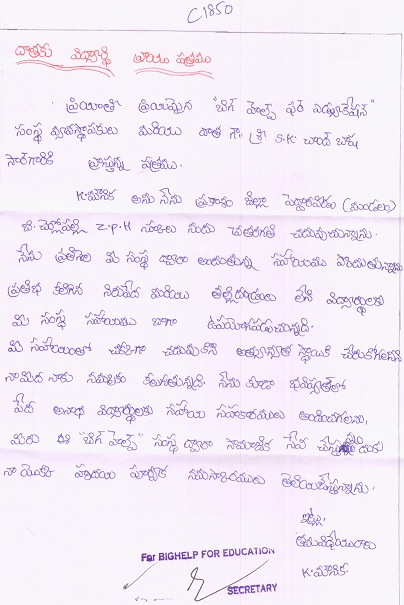 C1850
దాతకు విద్యార్థి వ్రాయు పత్రము
ప్రియాతి ప్రియమైన "బిగ్ హెల్ప్ ఫర్ ఎడ్యుకేషన్"
సంస్థ వ్యవస్థాపకులు మరియు దాత గౌ. శ్రీ S.K. చాంద్ బాషు
సార్‌గారికి వ్రాస్తున్న పత్రము.
K.మౌనిక అను నేను ప్రకాశం జిల్లా పెద్దారవీడు (మండలం)
Z.P.H నందు చదువుచున్నాను.
నేను ప్రతినెల మీ సంస్థ ద్వారా అందుతున్న సహాయము పొందుతున్నాను
ప్రతిభ కలిగిన నిరుపేద మరియు తల్లిదండ్రులు లేని విద్యార్థులకు
మీ సంస్థ సహాయము బాగా ఉపయోగపడుచున్నది.
మీ సహాయంతో చక్కగా చదువుకొని అత్యున్నత స్థాయికి చేరుకోగలనని
నామీద నాకు నమ్మకం కలుగుతున్నది. నేను కూడా భవిష్యత్‌లో
పేద అనాథ విద్యార్థులకు సహాయ సహకారములు అందించగలను,
మీరు ఈ "బిగ్ హెల్ప్" సంస్థ ద్వారా సామాజిక సేవ
నా యొక్క హృదయ పూర్వక నమస్కారములు తెలియజేస్తున్నాను.
ఇట్లు,
తమవిధేయురాలు
K.మౌనిక.
For BIGHELP FOR EDUCATION
SECRETARY